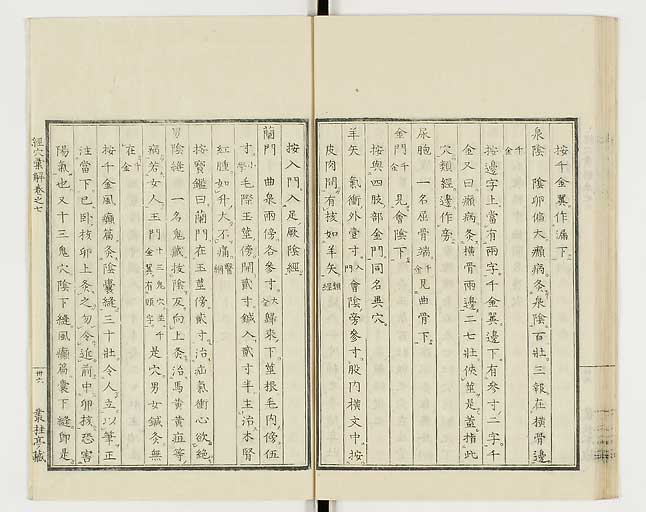 按千金翼作漏下
泉陰 陰卵偏大癩病灸泉陰百壯三報在橫骨邊
千金
按邊字上當有兩字千金翼邊下有參寸二字千
金又曰癩病灸橫骨兩邊二七壯俠莖是蓋指此
穴類經邊作旁
尿胞 一名屈骨端千金見曲骨下
金門千金 見會陰下
按與四肢部金門同名異穴
羊矢 氣衝外壹寸入門會陰旁參寸股內橫文中按
皮肉間有核如羊矢類經
按入門入足厥陰經
蘭門 曲泉兩傍各參寸大全歸來下莖根毛內傍伍
寸小學毛際王莖傍開貳寸鍼入貳寸半主治木腎
紅腫如升大不痛醫綱
按寶鑑曰蘭門在玉莖傍貳寸治疝氣衝心欲絕
男陰縫 一名鬼藏拔陰反向上灸治馬黃黃疸等
病若女人王門十三鬼穴在千金翼有頭字是穴男女鍼灸無
在千金
按千金風癲篇灸陰囊縫三十壯令人立以筆正
注當下已臥核卵上灸之勿令近前中卵核恐害
陽氣也又十三鬼穴陰下縫風癲篇囊下縫即是
經穴彙解卷之七
卅六
叢桂亭藏